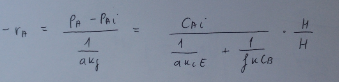 -rA = (PA - PAi) / (1 / akg) = CAi / (1 / akLE + 1 / fkCB) · H / H